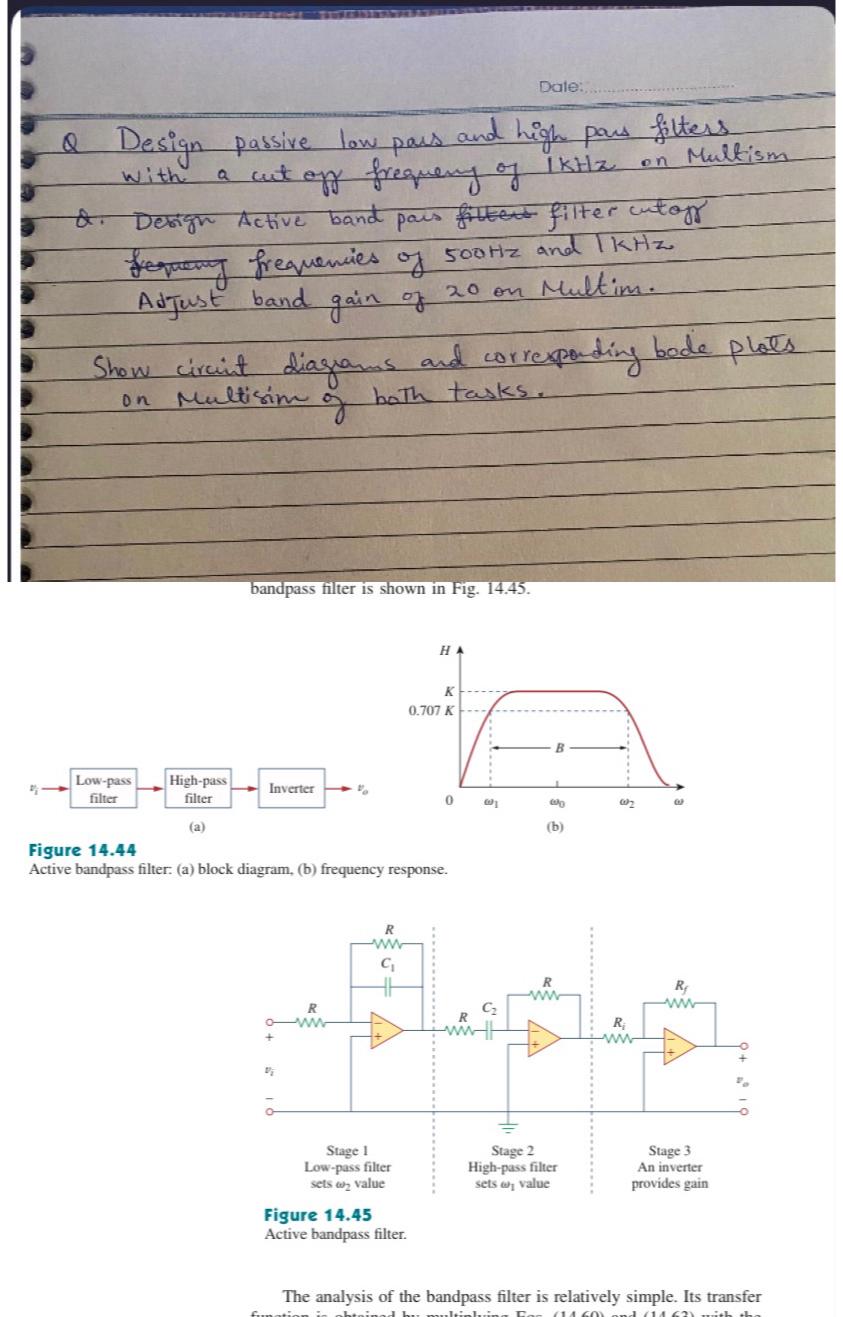 Date:
Q Design passive low pass and high pass filters
with a cut off frequency of 1KHz on Multism
Q. Design Active band pass filters filter cutoff
frequency frequencies of 500Hz and 1KHz
Adjust band gain of 20 on Multim.
Show circuit diagrams and corresponding bode plots
on Multisim of both tasks.
bandpass filter is shown in Fig. 14.45.
H
K
0.707 K
B
0 ω1 ω0 ω2 ω
vi Low-pass filter High-pass filter Inverter vo
(a)
(b)
Figure 14.44
Active bandpass filter: (a) block diagram, (b) frequency response.
R
C1
R
R
C2
R
Ri
Rf
+
vi
−
−
+
−
+
−
+
+
vo
−
Stage 1
Low-pass filter
sets ω2 value
Stage 2
High-pass filter
sets ω1 value
Stage 3
An inverter
provides gain
Figure 14.45
Active bandpass filter.
The analysis of the bandpass filter is relatively simple. Its transfer
function is obtained by multiplying Eqs. (14.60) and (14.63) with the